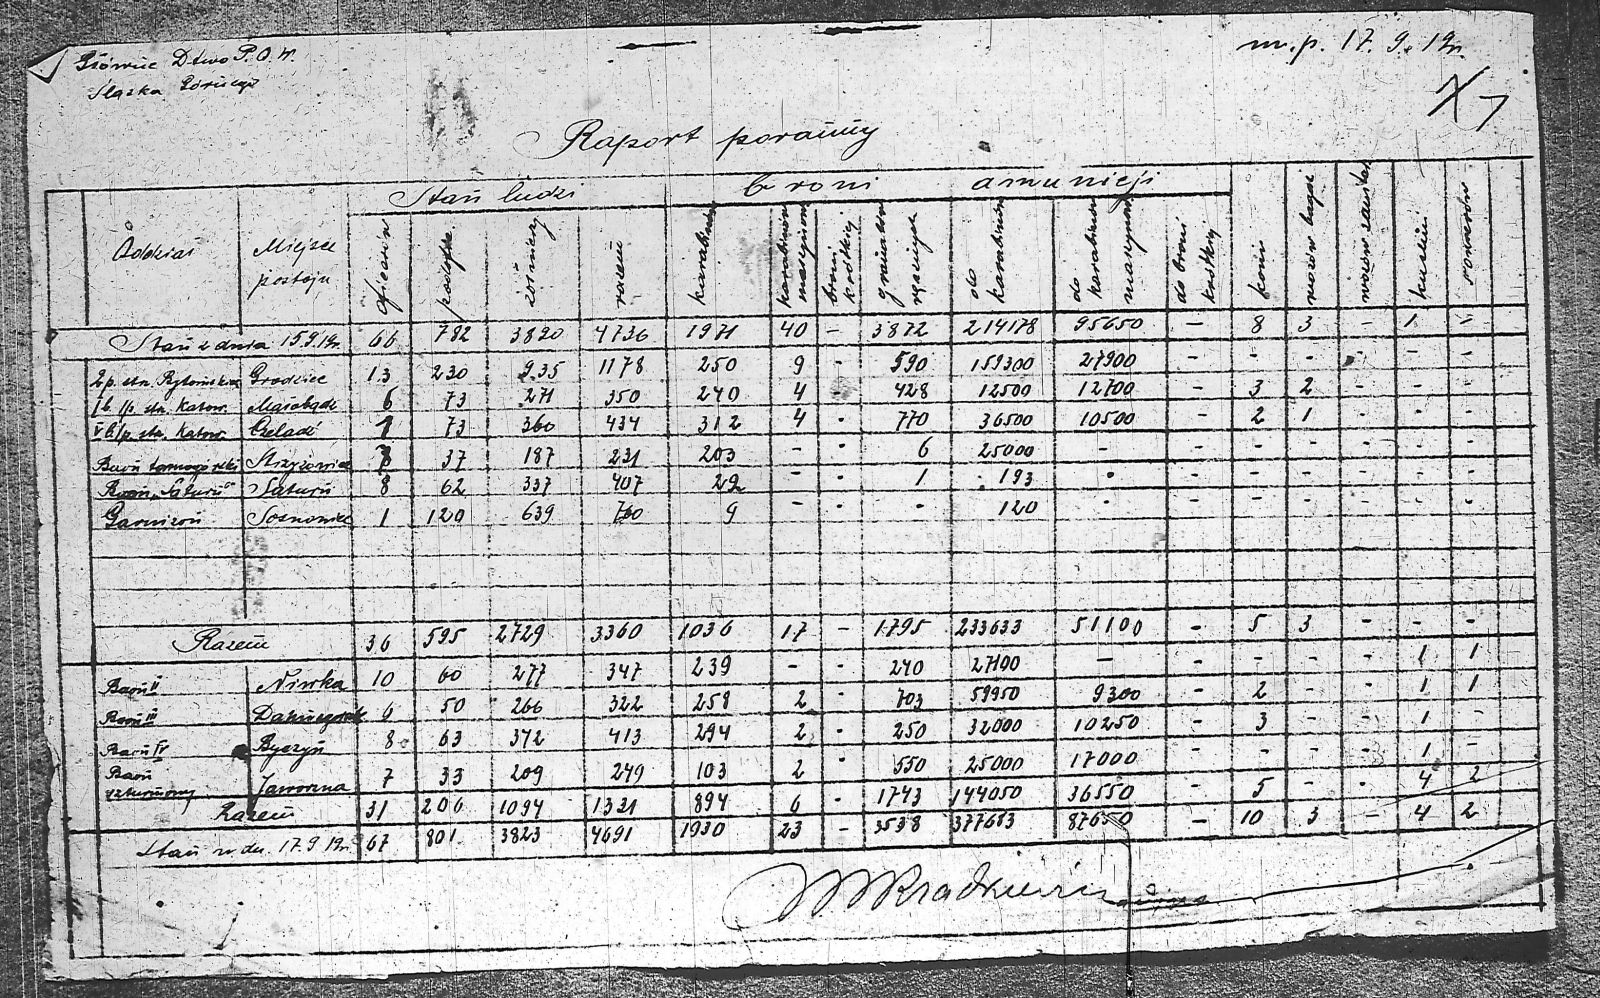 Główne Dtwo P.O.W.
Śląska Górnego
m.p. 17. 9. 19r.
7
Raport poranny
Stan ludzi broni amunicji
Oddział Miejsce postoju oficerów podofic. żołnierzy razem karabinów karabinów maszynow. broni krótkiej granatów ręcznych do karabinów do karabinów maszynow. do broni krótkiej koni wozów bagaż. wozów sanitar. kuchni rowerów
Stan z dnia 15.9.19r. 66 782 3890 4736 1971 40 - 3872 214178 95650 - 8 3 - 1 -
2 p. str. Bytomskich Grodziec 13 230 935 1178 250 9 - 590 159300 27900 - - - - - -
I b. I p. str. Katow. Małobądz 6 73 271 350 240 4 - 428 12500 12700 - 3 2 - - -
V b. I p. str. Katow. Czeladź 1 73 360 434 312 4 - 770 36500 10500 - 2 1 - - -
Baon tarnogórski Strzyżowice 7 37 187 231 203 - - 6 25000 - - - - - - -
Baon "Saturn" Saturn 8 62 337 407 22 - - 1 193 - - - - - - -
Garnizon Sosnowiec 1 120 639 760 9 - - - 120 - - - - - - -
Razem 36 595 2729 3360 1036 17 - 1795 233633 51100 - 5 3 - - -
Baon II Niwka 10 60 277 347 239 - - 240 27100 - - - - - 1 1
Baon III 6 50 266 322 258 2 - 703 59950 9300 - 2 - - 1 1
Baon IV Byczyn 8 63 342 413 294 2 - 250 32000 10250 - 3 - - 1 -
Baon szturmowy Jaworzna 7 33 209 249 103 2 - 550 25000 17000 - - - - 1 -
Razem 31 206 1094 1331 894 6 - 1743 144050 36550 - 5 - - 4 2
Stan w dn. 17.9 19r. 67 801 3823 4691 1930 23 - 3538 377683 87650 - 10 3 - 4 2